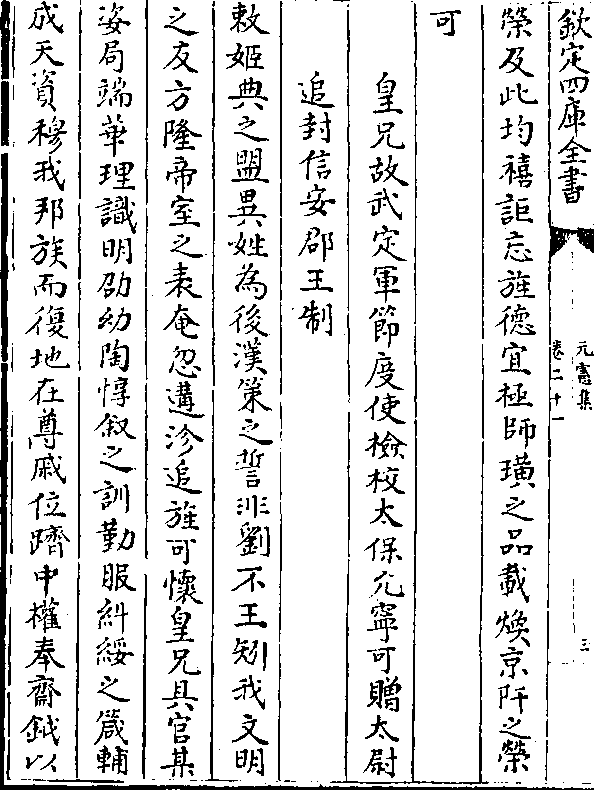 欽定四庫全書
元憲集
卷二十一
三
榮及此均禧詎忘旌德宜極師璜之品載煥京阡之榮
可
皇兄故武定軍節度使檢校太保允寧可贈太尉
追封信安郡王制
敕姬典之盟異姓為後漢策之誓非劉不王矧我文明
之友方隆帝室之表奄忽遘沴追旌可懷皇兄具官某
姿局端華理識明劭幼陶惇叙之訓勤服糾綏之箴輔
成天資穆我邦族而復地在尊戚位躋中權奉齋鉞以